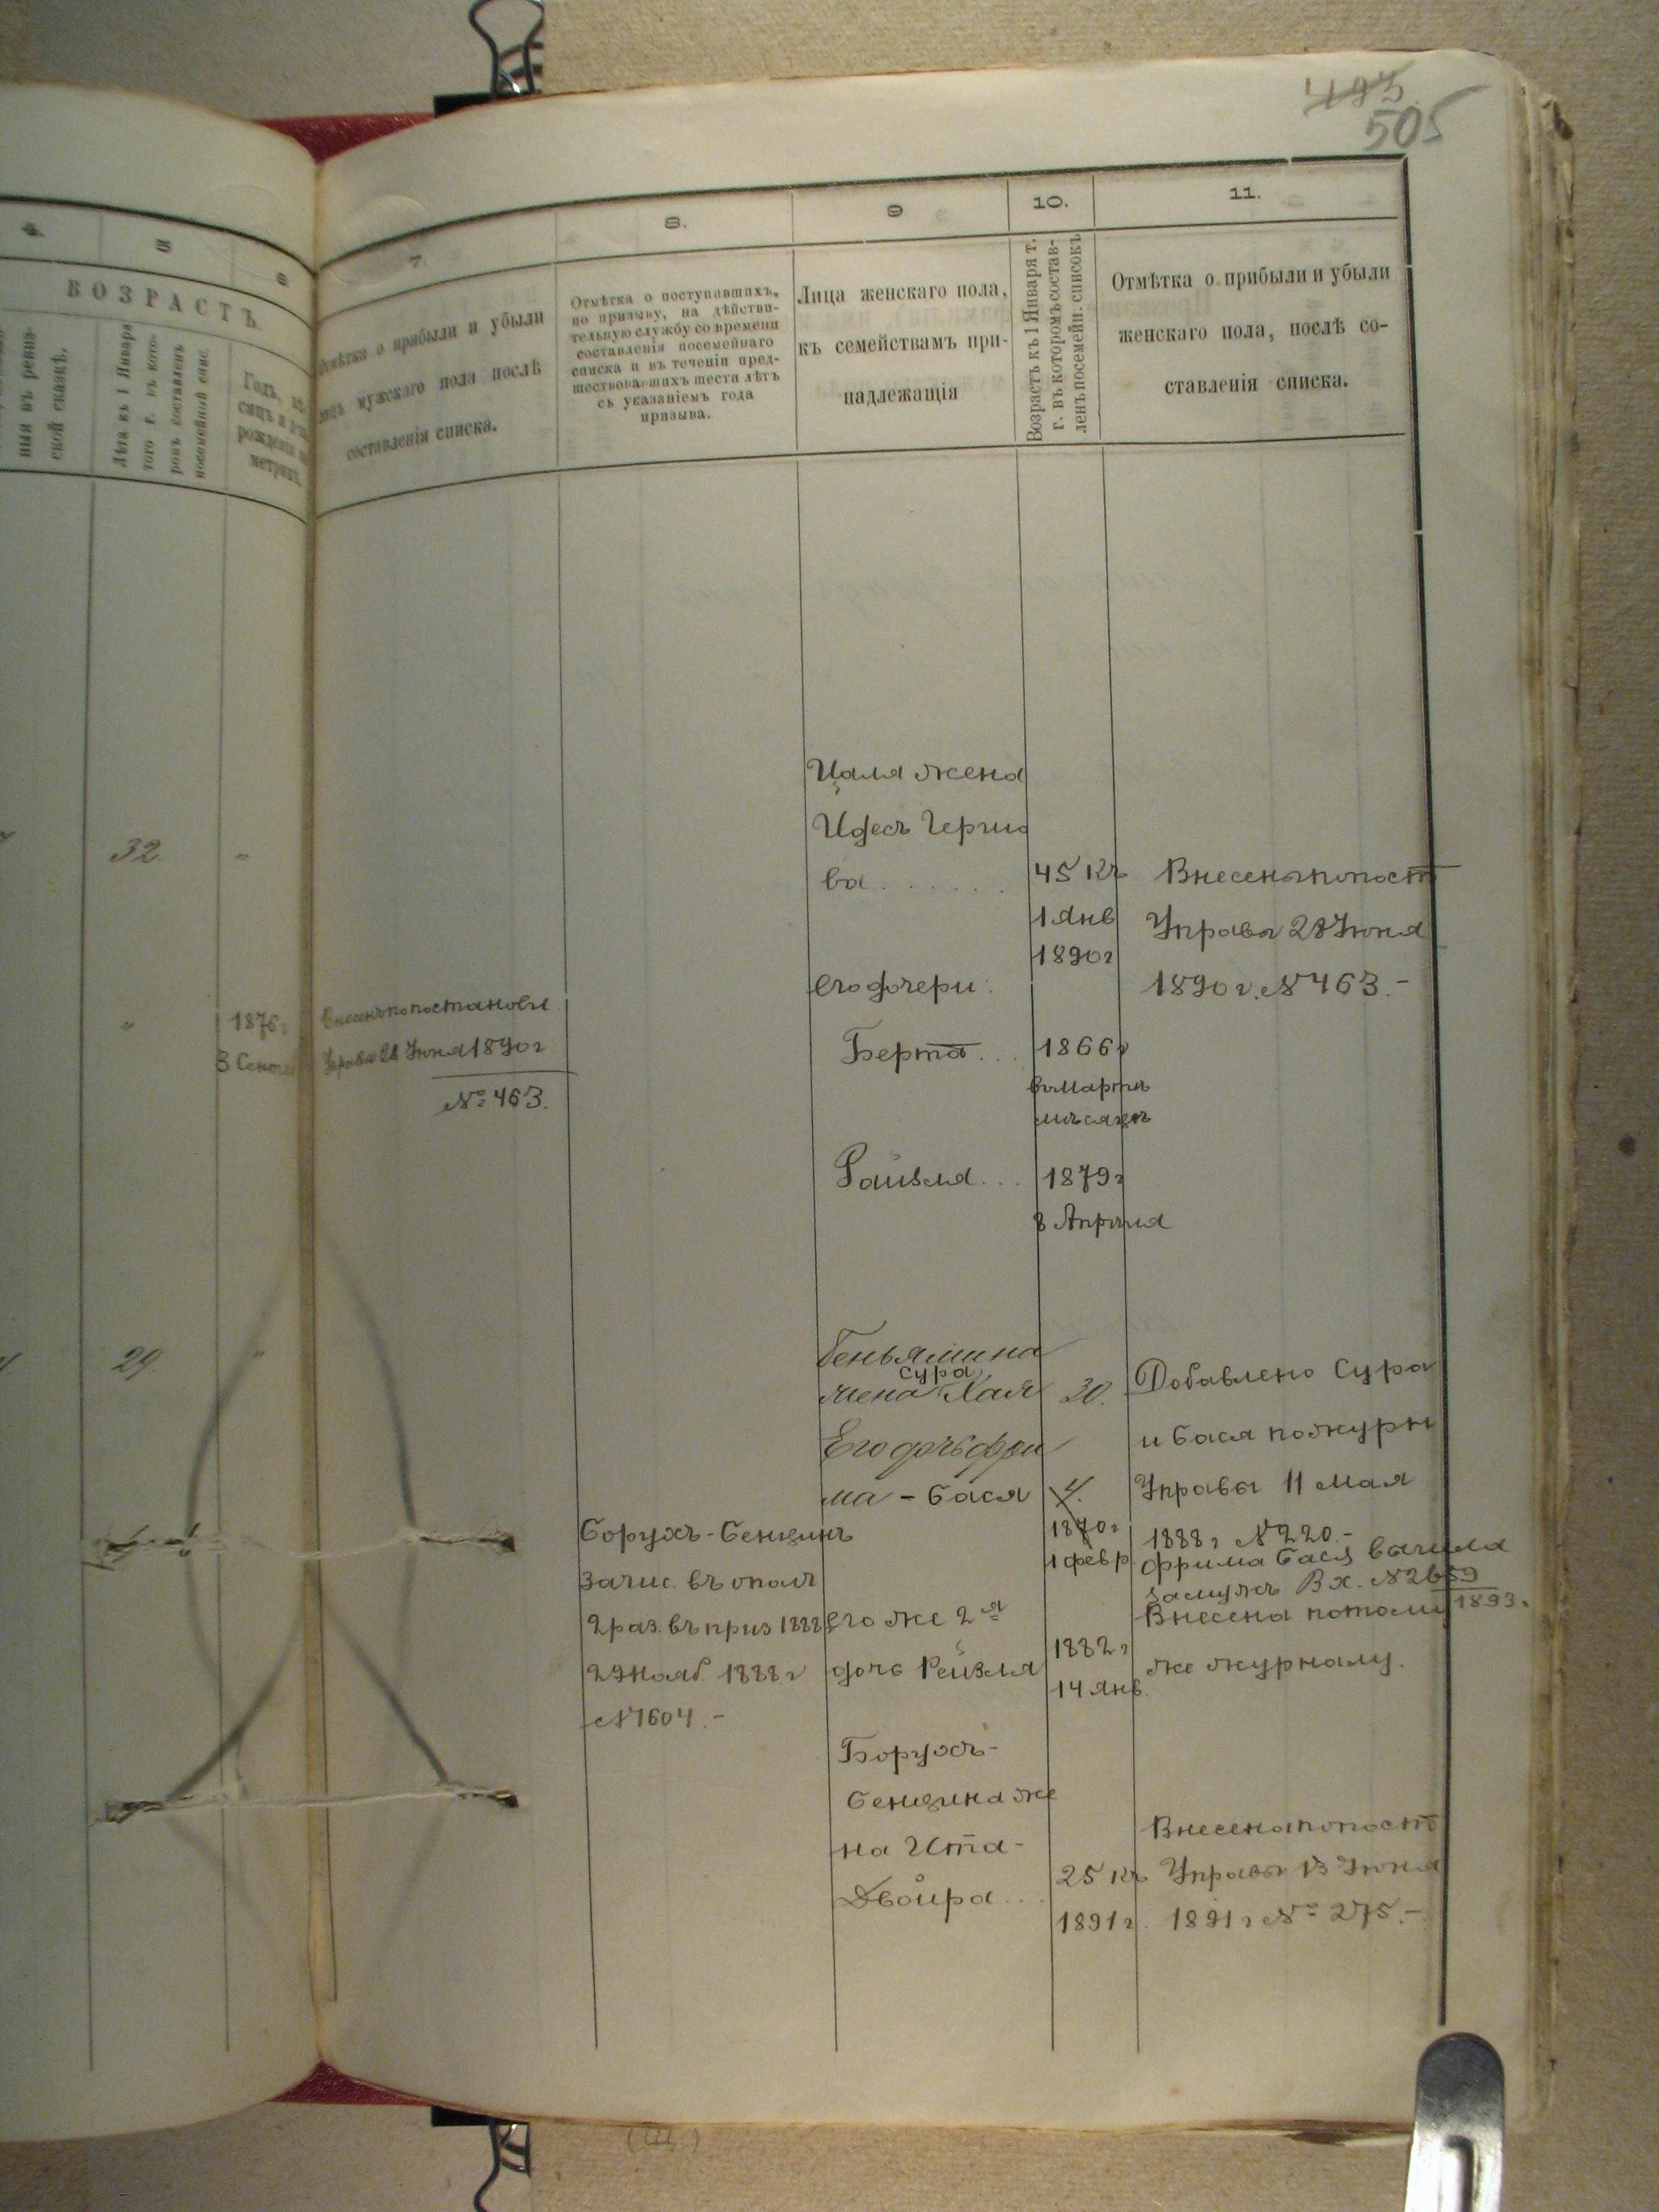 493
505
4
5
6
7.
8.
9
10.
11.
ВОЗРАСТЪ
ныя въ ревиз-
ской сказкѣ.
Лѣта къ 1 Января
того г. въ кото-
ромъ составленъ
посемейный спис.
Годъ, мѣ-
сяцъ и
рожденія
метрик.
Отмѣтка о прибыли и убыли
лицъ мужскаго пола послѣ
составленія списка.
Отмѣтка о поступившихъ,
по призыву, на дѣйстви-
тельную службу со времени
составленія посемейнаго
списка и въ теченіи пред-
шествовавшихъ шести лѣтъ
съ указаніемъ года
призыва.
Лица женскаго пола,
къ семействамъ при-
надлежащія
Возрастъ къ 1 Января т.
г. въ которомъ состав-
ленъ посемейн. списокъ
Отмѣтка о прибыли и убыли
женскаго пола, послѣ со-
ставленія списка.
32 "
" 1876 г
3 Сент
Внесенъ по постановл
Управы 28 Июня 1890 г
№ 463.
Цаля жена
Идесъ Герш
ва . . . . . .
45 къ
1 Янв
1890 г
Внесена по пост
Управы 28 Июня
1890 г. № 463.-
Его дочери:
Берта . . 1866 г
въ мартѣ
мѣсяцѣ
Райзля . . . 1879 г
8 Апрѣля
29 "
Беньямина
Сура
жена Хая 30.
Его дочь Фри
ма - Бася 4.
1870 г
1 февр.
Добавлено Сура
и Бася по журн
Управы 11 Мая
1888 г № 220.-
Фрима Бася вышла
замужъ Вх. № 2659
1893.
Борухъ-Бенционъ
зачис. въ опол
2 раз. въ приз 1888
29 Нояб. 1888 г
№ 1604.-
его же 2я
дочь Рейзля
1882 г
14 янв.
Внесена по тому
же журналу.
Борухъ-
Бенциона же
на Ита-
Двойра . . .
25 къ
1891 г.
Внесена по пост
Управы 13 Июня
1891 г № 275.-